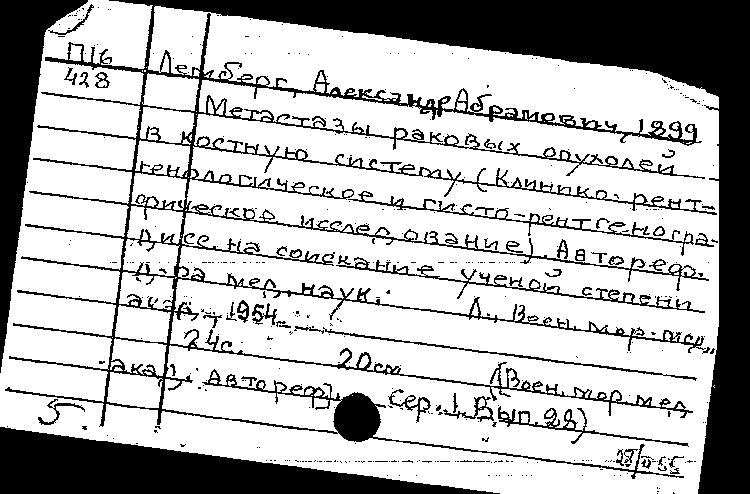 П16
428
Лемберг, Александр Абрамович, 1899
Метастазы раковых опухолей
в костную систему. (Клинико-рент-
генологическое и гисто-рентгеногра-
фическое исследование). Автореф.
дисс. на соискание ученой степени
д-ра мед. наук. Л., Воен. мор. мед.
акад., 1954.
24с. 20см. (Воен. мор. мед
акад. Автореф. сер. 1. Вып. 28)
5.